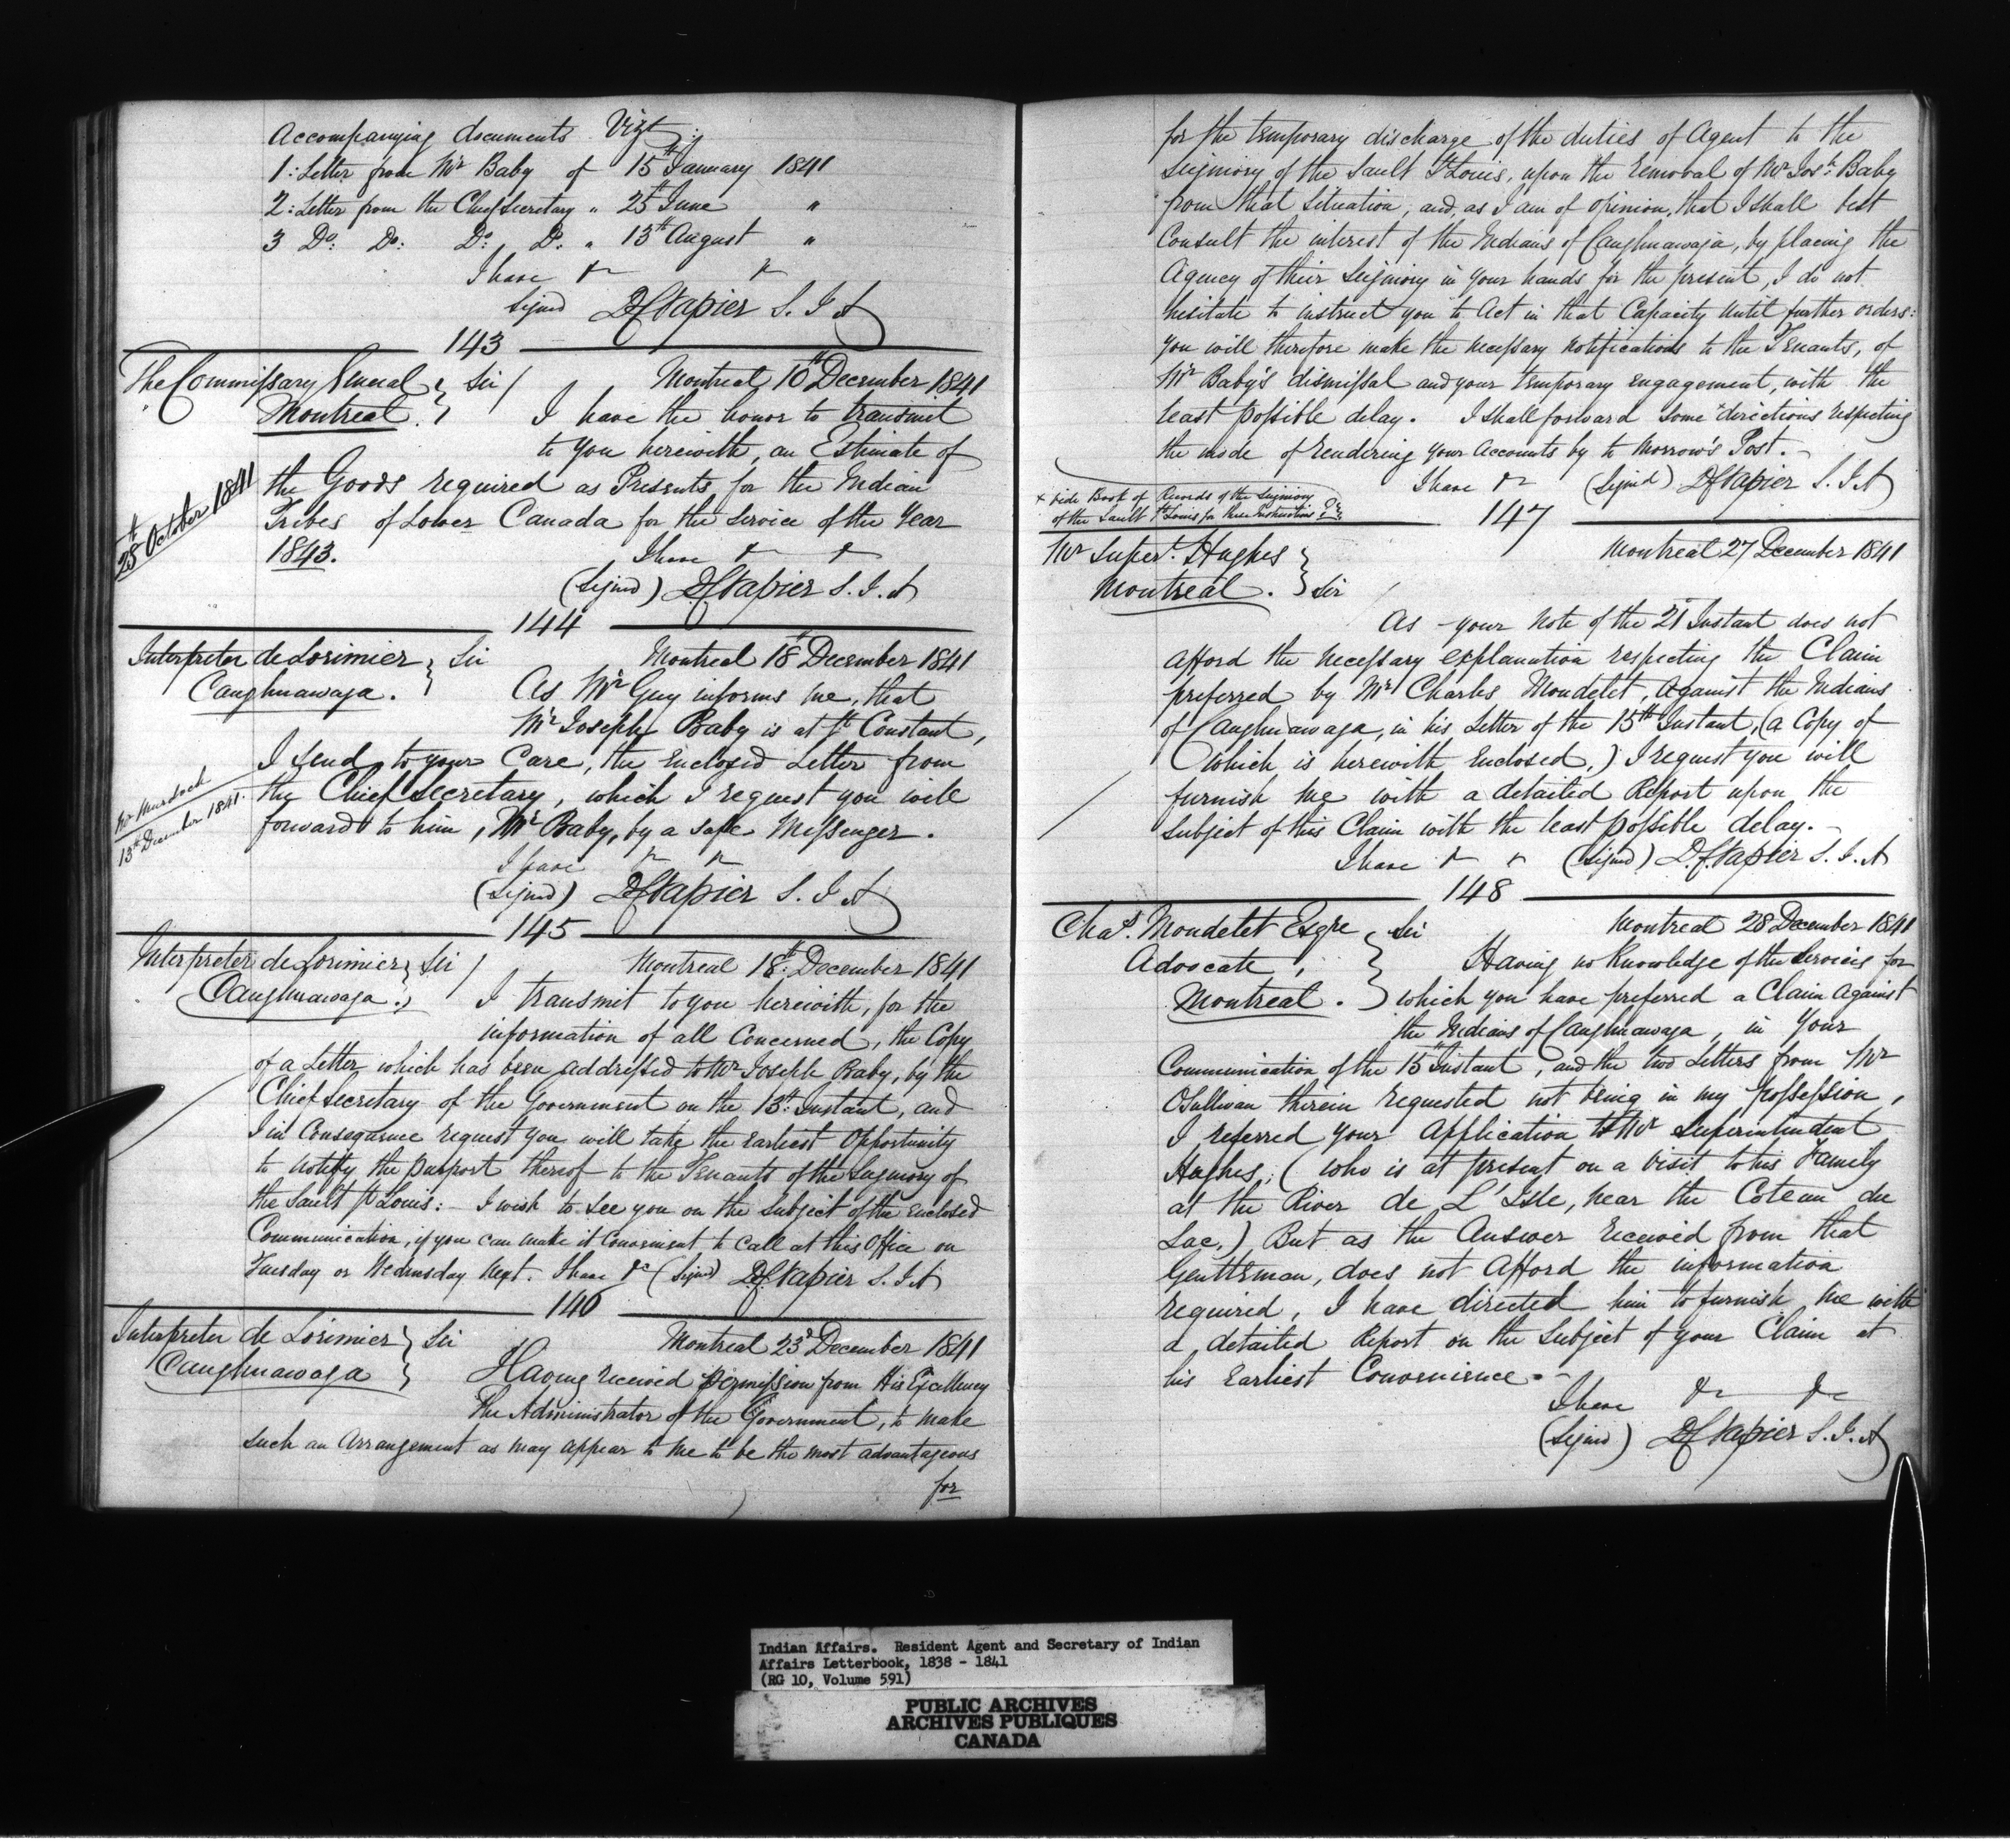 Accompanying documents Vizt:
1: Letter from Mr Baby of 15th January 1841
2: Letter from the Chief Secretary " 25th June "
3 Do: Do: Do: Do. " 13th August "
I have &c &c
Signed D C Napier S. I A
143
The Commissary General Montreal. } Sir / Montreal 10th December 1841
I have the honor to transmit
to you herewith, an Estimate of
28th October 1841
the Goods required as Presents for the Indian
Tribes of Lower Canada for the Service of the Year
1843.
I have &c &c
(Signed) D C Napier S. I. A
144
Interpreter de Lorimier Caughnawaga. } Sir Montreal 18th December 1841
As Mr Guy informs me, that
Mr Joseph Baby is at St Constant,
I send to your Care, the Enclosed Letter from
Mr Murdoch
13th December 1841.
the Chief Secretary, which I request you will
forward to him, Mr Baby, by a safe Messenger.
I have &c &c
(Signed) D C Napier S. I A
145
Interpreter de Lorimier Caughnawaga. } Sir / Montreal 18th December 1841
I transmit to you herewith, for the
information of all Concerned, the Copy
of a Letter which has been addressed to Mr Joseph Baby, by the
Chief Secretary of the Government on the 13th Instant, and
I in Consequence request you will take the Earliest Opportunity
to notify the purport thereof to the Tenants of the Seigniory of
the Sault St Louis: - I wish to see you on the Subject of the Enclosed
Communication, if you can make it Convenient to Call at this Office on
Tuesday or Wednesday Next. I have &c (Signed) D C Napier S. I A
146
Interpreter de Lorimier Caughnawaga } Sir Montreal 23d December 1841
Having received permission from His Excellency
The Administrator of the Government, to make
such an Arrangement as may appear to me to be the most advantageous
for
for the temporary discharge of the duties of Agent to the
Seigniory of the Sault St Louis, upon the removal of Mr Josh: Baby
from that Situation, and, as I am of opinion, that I shall best
Consult the interest of the Indians of Caughnawaga, by placing the
Agency of their Seigniory in your hands for the present, I do not
hesitate to instruct you to Act in that Capacity until further orders:
you will therefore make the necessary notifications to the Tenants, of
Mr Baby's dismissal and your temporary engagement, with the
least possible delay. I shall forward some x directions respecting
the mode of rendering your Accounts by to Morrow's Post. -
I have &c (Signed) D C Napier S. I. A
x vide Book of Records of the Seigniory
of the Sault St Louis for these Instructions
147
Mr Supert. Hughes Montreal. } Sir Montreal 27 December 1841
As your Note of the 21st Instant does not
Afford the necessary explanation respecting the Claim
preferred by Mr Charles Mondelet, Against the Indians
of Caughnawaga, in his Letter of the 15th Instant, (a Copy of
which is herewith Enclosed,) I request you will
furnish me with a detailed Report upon the
Subject of this Claim with the least possible delay. -
I have &c &c (Signed) D. C. Napier S. I. A
148
Chas. Mondelet Esqre Advocate, Montreal. } Sir Montreal 28 December 1841
Having no Knowledge of the Services for
which you have preferred a Claim Against
the Indians of Caughnawaga, in Your
Communication of the 15th Instant, and the two Letters from Mr
OSullivan therein requested not being in my possession,
I referred your Application to Mr Superintendent
Hughes, (who is at present on a Visit to his Family
at the River de L'Isle, near the Coteau du
Lac.) But as the Answer received from that
Gentleman, does not Afford the information
required, I have directed him to furnish me with
a detailed Report on the Subject of your Claim at
his Earliest Convenience. -
I have &c &c
(Signed) D C Napier S. I. A
Indian Affairs. Resident Agent and Secretary of Indian
Affairs Letterbook, 1838 - 1841
(RG 10, Volume 591)
PUBLIC ARCHIVES
ARCHIVES PUBLIQUES
CANADA